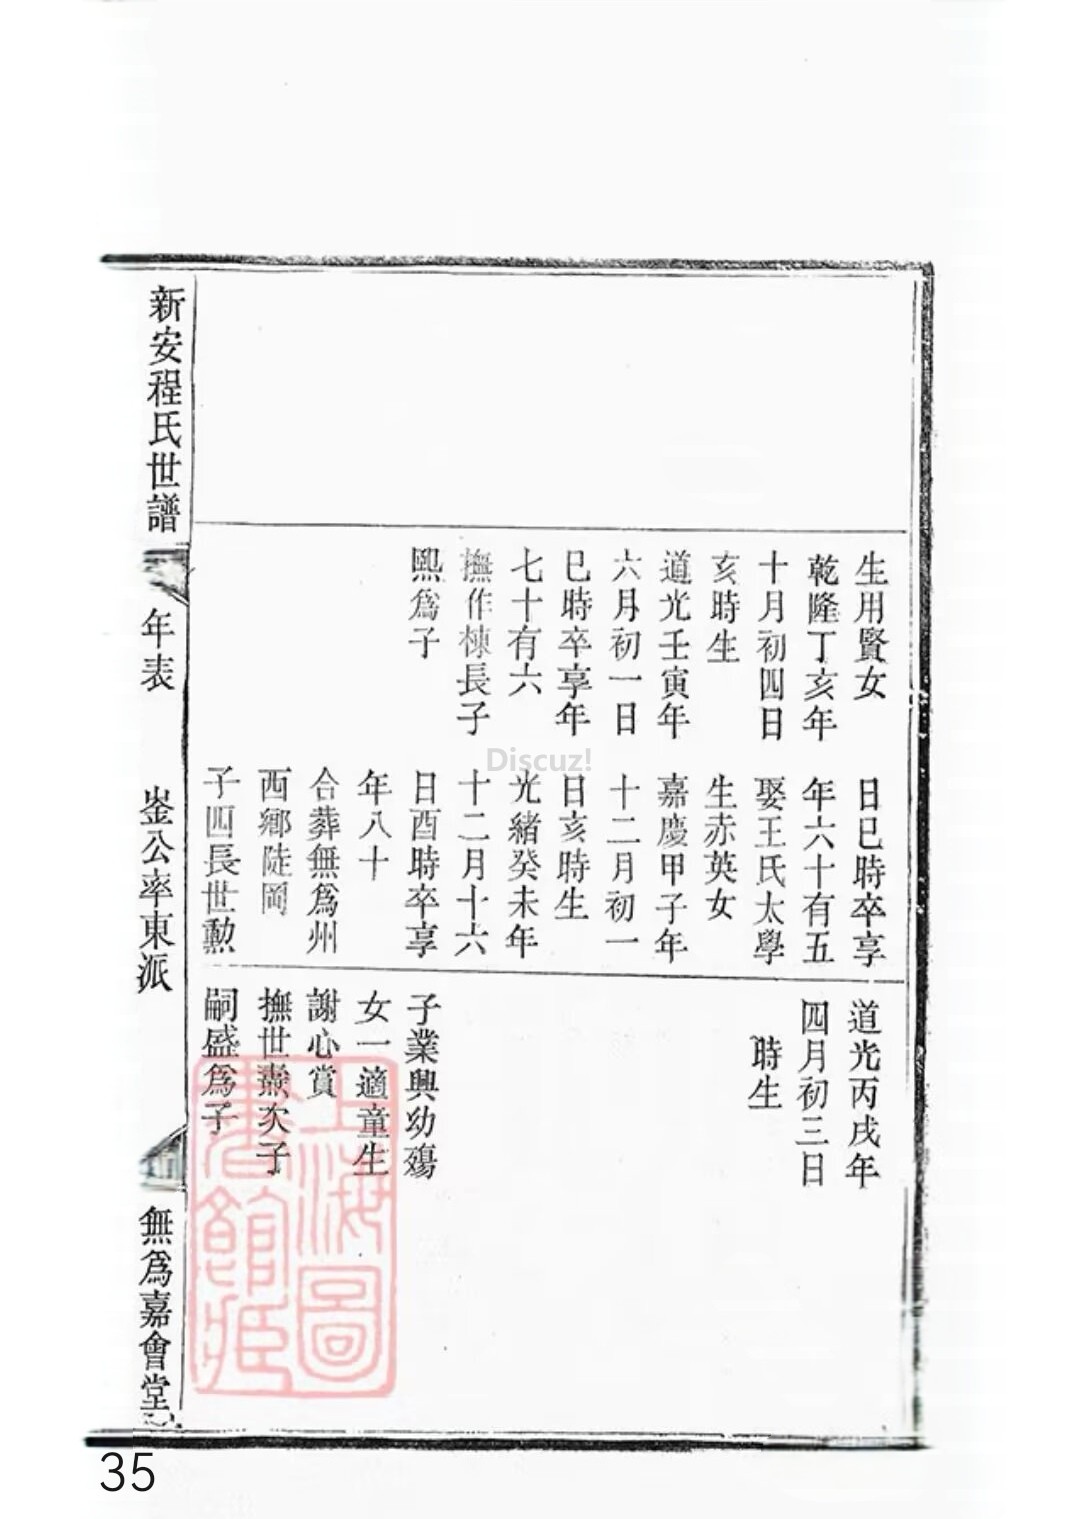 生用賢女
乾隆丁亥年
十月初四日
亥時生
道光壬寅年
六月初一日
巳時卒享年
七十有六
撫作棟長子
熙爲子
日巳時卒享
年六十有五
娶王氏太學
生赤英女
嘉慶甲子年
十二月初一
日亥時生
光緒癸未年
十二月十六
日酉時卒享
年八十
合葬無爲州
西鄉陡岡
子四長世勲
道光丙戌年
四月初三日
時生
子業興幼殤
女一適童生
謝心賞
撫世燾次子
嗣盛爲子
新安程氏世譜
年表
崟公率東派
無爲嘉會堂
上海圖
書館藏
Discuz!
35